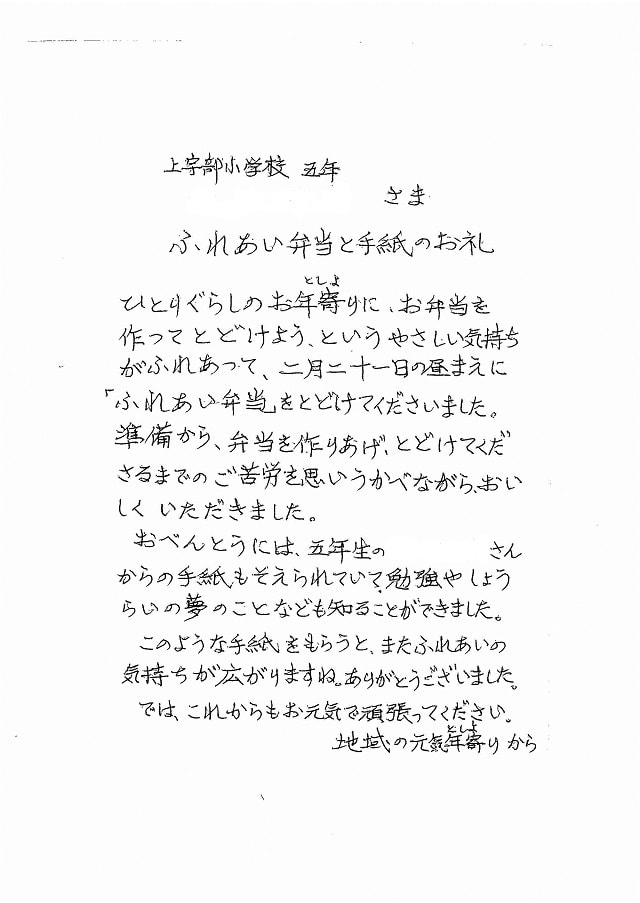 上宇部小学校 五年
さま
ふれあい弁当と手紙のお礼
としよ
ひとりぐらしのお年寄りに、お弁当を
作ってとどけよう、というやさしい気持ち
がふれあって、二月二十一日の昼まえに
「ふれあい弁当」をとどけてくださいました。
準備から、弁当を作りあげ、とどけてくだ
さるまでのご苦労を思いうかべながら、おい
しくいただきました。
おべんとうには、五年生の さん
からの手紙もそえられていて、勉強やしょう
らいの夢のことなども知ることができました。
このような手紙をもらうと、またふれあいの
気持ちが広がりますね。ありがとうございました。
では、これからもお元気で頑張ってください。
としよ
地域の元気年寄りから